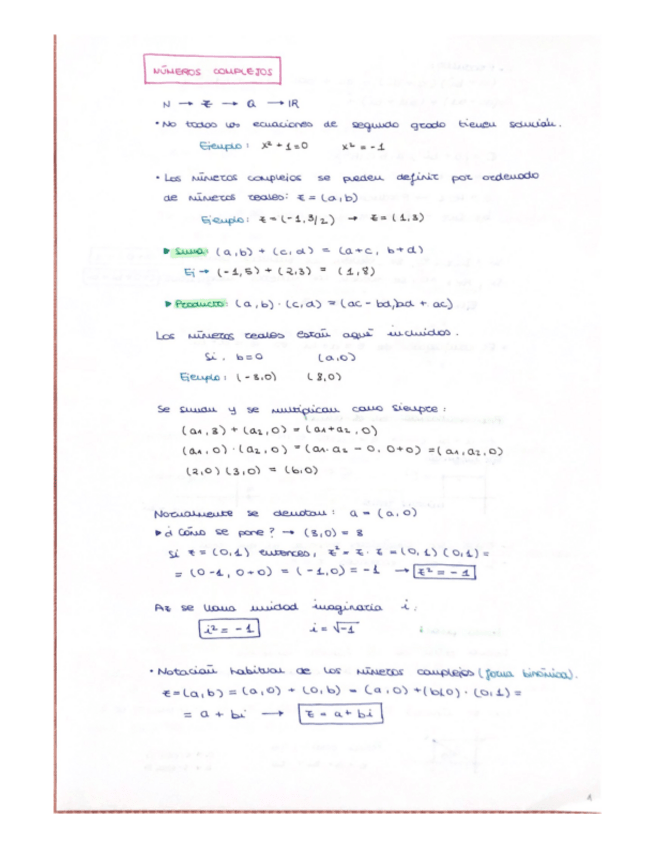 NÚMEROS COMPLEJOS
N → Z → Q → IR
• No todas las ecuaciones de segundo grado tienen solución.
Ejemplo: x² + 1 = 0 x² = -1
• Los números complejos se pueden definir por ordenado
de números reales: z = (a, b)
Ejemplo: z = (-1, 3/2) → z = (1, 3)
▶ Suma: (a, b) + (c, d) = (a+c, b+d)
Ej → (-1, 5) + (2, 3) = (1, 8)
▶ Producto: (a, b) · (c, d) = (ac - bd, ad + ac)
Los números reales están aquí incluidos.
Si. b=0 (a, 0)
Ejemplo: (-3, 0) (8, 0)
Se suman y se multiplican como siempre:
(a₁, 8) + (a₂, 0) = (a₁+a₂, 0)
(a₁, 0) · (a₂, 0) = (a₁·a₂ - 0, 0+0) = (a₁, a₂, 0)
(2, 0) (3, 0) = (6, 0)
Normalmente se denotan: a = (a, 0)
▶ ¿Cómo se pone? → (8, 0) = 8
Si z = (0, 1) entonces, z² = z · z = (0, 1) (0, 1) =
= (0-1, 0+0) = (-1, 0) = -1 → z² = -1
Az se llama unidad imaginaria i:
i² = -1 i = √-1
• Notación habitual de los números complejos (forma binómica).
z = (a, b) = (a, 0) + (0, b) = (a, 0) + (b, 0) · (0, 1) =
= a + bi → z = a + bi
1